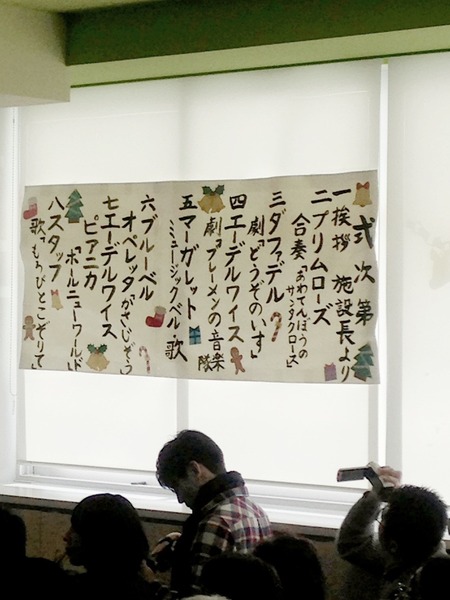 式次第
一 挨拶 施設長より
二 プリムローズ
合奏「あわてんぼうの
サンタクロース」
三 ダファデル
劇「どうぞのいす」
四 エーデルワイス
劇「ブレーメンの音楽隊」
五 マーガレット
ミュージックベル・歌
六 ブルーベル
オペレッタ「かさじぞう」
七 エーデルワイス
ピアニカ
「ホール・ニュー・ワールド」
八 スタッフ
歌「もろびとこぞりて」